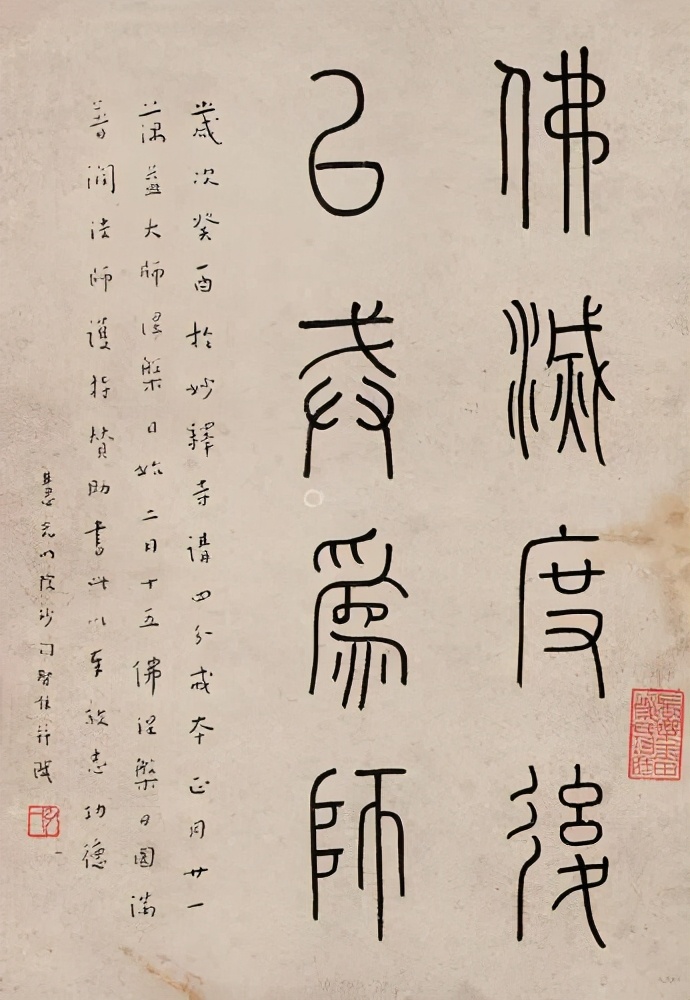 佛滅度後
以戒為師
歲次癸酉於妙釋寺講四分戒本正月廿一
蕅益大師涅槃日始二月十五佛涅槃日圓滿
普潤法師護持贊助書此以奉於志功德
沙門 并識